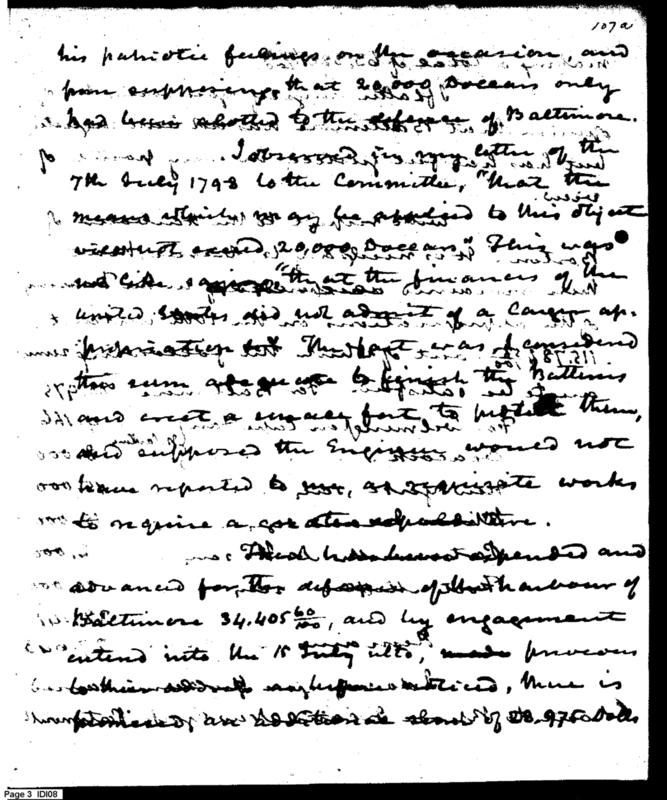 107a
his patriotic feelings on the occasion and
pain supposing, that 20,000 Dollars only
had been alotted to the defence of Baltimore.
I observed in my letter of the
7th July 1798 to the Committee, "that the
means which may be applied to this object
will not exceed 20,000 Dollars." This was
not like saying "that the finances of the
united States did not admit of a larger ap-
propriation" The fact was I considered
this sum adequate to finish the Batteries
and erect a small fort to protect them,
and supposed the Engineer would not
have reported to me, as requisite works
to require a greater expenditure.
There has been expended and
advanced for the defence of the harbour of
Baltimore 34.405 60/100, and by engagement
entered into the 15 July ulto, previous
to their address noticed, there is
promised, an additional sum of 28.975 Dolls
Page 3 IDI08